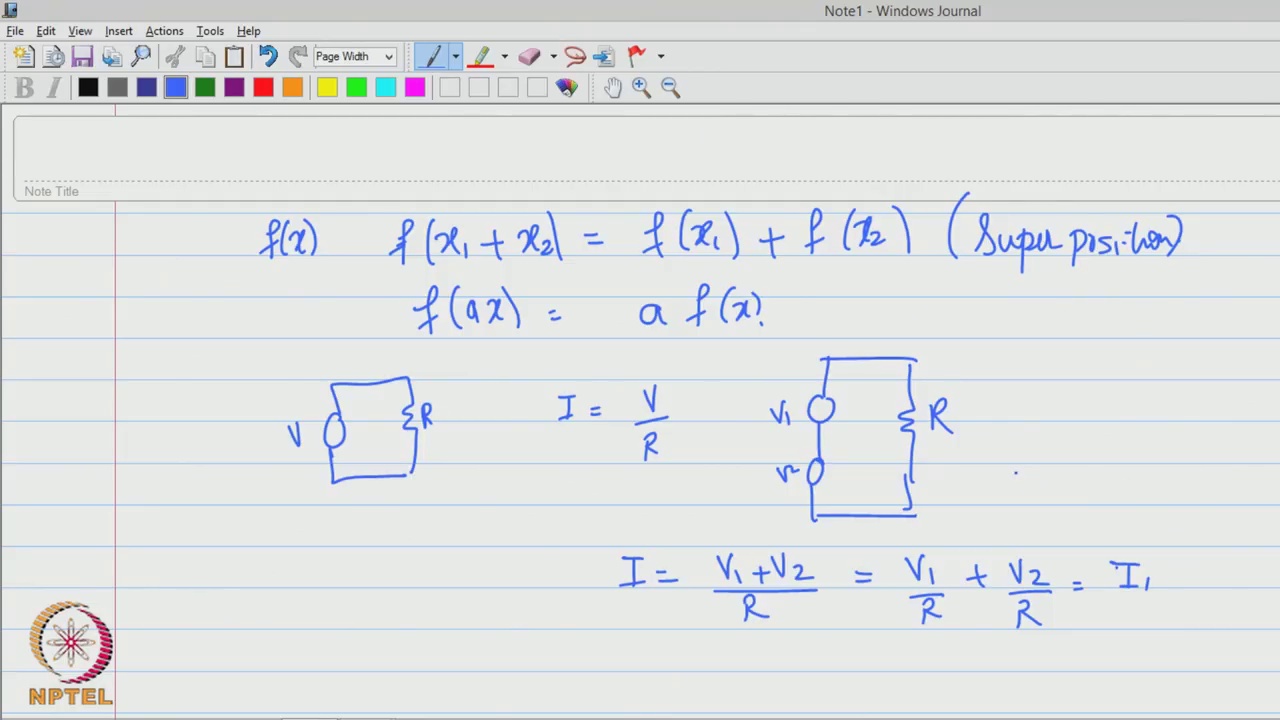 Note1 - Windows Journal
File Edit View Insert Actions Tools Help
Page Width
B I
Note Title
f(x) f(x₁ + x₂) = f(x₁) + f(x₂) (Superposition)
f(ax) = a f(x)
V R I = V/R V₁ R
V2
I = (V₁ + V₂)/R = V₁/R + V₂/R = I₁
NPTEL